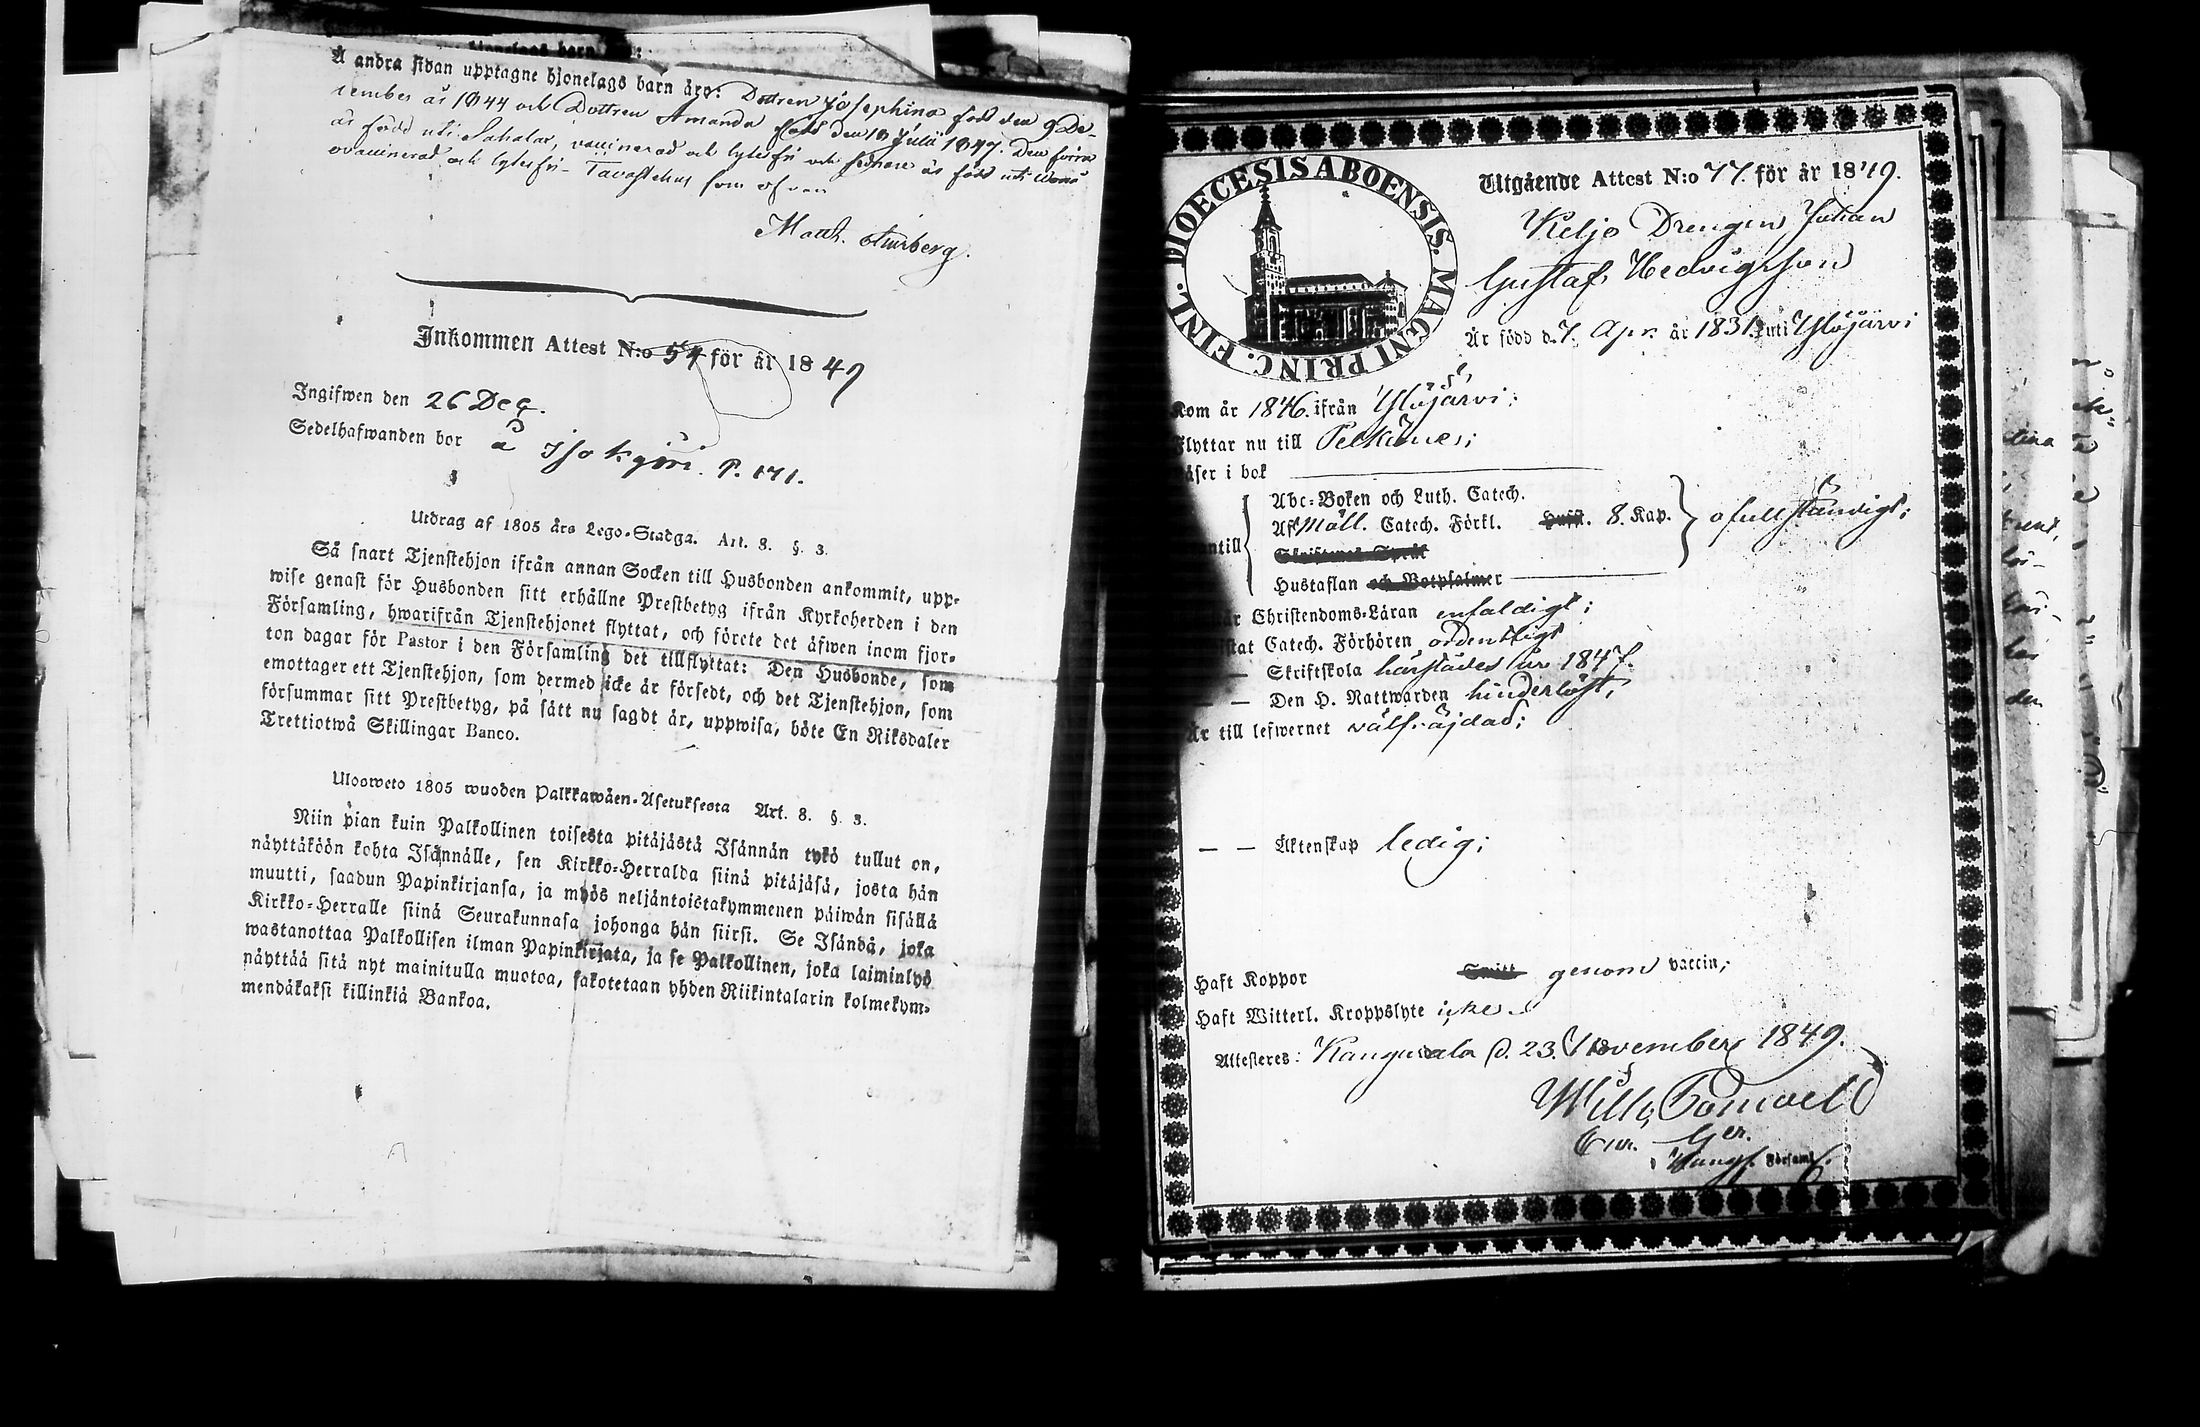 Å andra sidan upptagne hjonelags barn äro: Dottren Josephina född den 9 De-
cember år 1844 och Dottren Amanda född den 10 Julii 1847. Den förra
är född uti Sahalax, vaccinerad och lytesfri och sednare är född uti
ovaccinerad och lytesfri - Tavastehus som ofvan
Matth. Åurberg.
Inkommen Attest N:o 54 för år 1849
Ingifwen den 26 Dec.
Sedelhafwanden bor å P. 171.
Utdrag af 1805 års Lego-Stadga. Art. 8. §. 3.
Så snart Tjenstehjon ifrån annan Socken till Husbonden ankommit, upp-
wise genast för Husbonden sitt erhållne Prestbetyg ifrån Kyrkoherden i den
Församling, hwarifrån Tjenstehjonet flyttat, och förete det äfwen inom fjor-
ton dagar för Pastor i den Församling det tillflyttat: Den Husbonde, som
emottager ett Tjenstehjon, som dermed icke är försedt, och det Tjenstehjon, som
försummar sitt Prestbetyg, på sätt nu sagdt är, uppwisa, böte En Riksdaler
Trettiotwå Skillingar Banco.
Ulosweto 1805 wuoden Palkkawäen-Asetuksesta Art. 8. §. 3.
Niin pian kuin Palkollinen toisesta pitäjästä Isännän tykö tullut on,
näyttäköön kohta Isännälle, sen Kirkko-Herralda siinä pitäjäsä, josta hän
muutti, saadun Papinkirjansa, ja myös neljäntoistakymmenen päiwän sisällä
Kirkko-Herralle siinä Seurakunnasa johonga hän siirsi. Se Isändä, joka
wastanottaa Palkollisen ilman Papinkirjata, ja se Palkollinen, joka laiminlyö
näyttää sitä nyt mainitulla muotoa, sakotetaan yhden Riikintalarin kolmekym-
mendäkaksi killinkiä Bankoa.
DIOECESIS ABOENSIS. MAGNI PRINC. FINL.
Utgående Attest N:o 77. för år 1849.
Keljo Drengen Johan
Gustaf Hedvigsson
Är född d. 7. Apr. år 1831. uti Ylöjärvi
Kom år 1846. ifrån Ylöjärvi;
Flyttar nu till Pelkäne;
äser i bok
Abc-Boken och Luth. Catech.
Af Möll. Catech. Förkl. Hufst. 8. Kap. ofullständigt;
antill
Skriftenes Språk
Hustaflan och Botpsalmer
är Christendoms-Läran enfaldigt;
istat Catech. Förhören ordentligt
— Skriftskola härstädes år 1847.
— — Den H. Nattwarden hinderlöst;
Är till lefwernet välfräjdad;
— — Äktenskap ledig;
Haft Koppor Smitt genom vaccin;
Haft Witterl. Kroppslyte icke.
Attesteres: Kangasala d. 23. November 1849.
Församl.